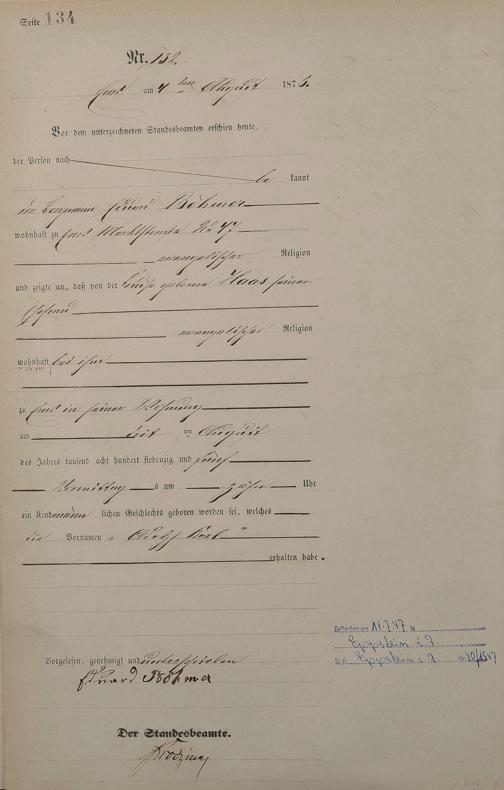 Seite 134
Nr. 132.
Ems am 4 ten August 1875.
Vor dem unterzeichneten Standesbeamten erschien heute,
der Person nach
be kannt
der Eduard Böhmer
wohnhaft zu Ems No 47
evangelischer Religion
und zeigte an, daß von der Luise geborne Haas seiner
Ehefrau
evangelischer Religion
wohnhaft bei ihm
zu Ems in seiner Wohnung
am ten August
des Jahres tausend acht hundert siebenzig und fünf
Vormittag s um zehn Uhr
ein Kind männ lichen Geschlechts geboren worden sei, welches
die Vornamen „Adolf Karl"
erhalten habe.
Vorgelesen, genehmigt und unterschrieben
Eduard Böhmer
Der Standesbeamte.
Gestorben am 11.7.47 in
Eppstein i. T.
Eppstein i. T. 40/1947